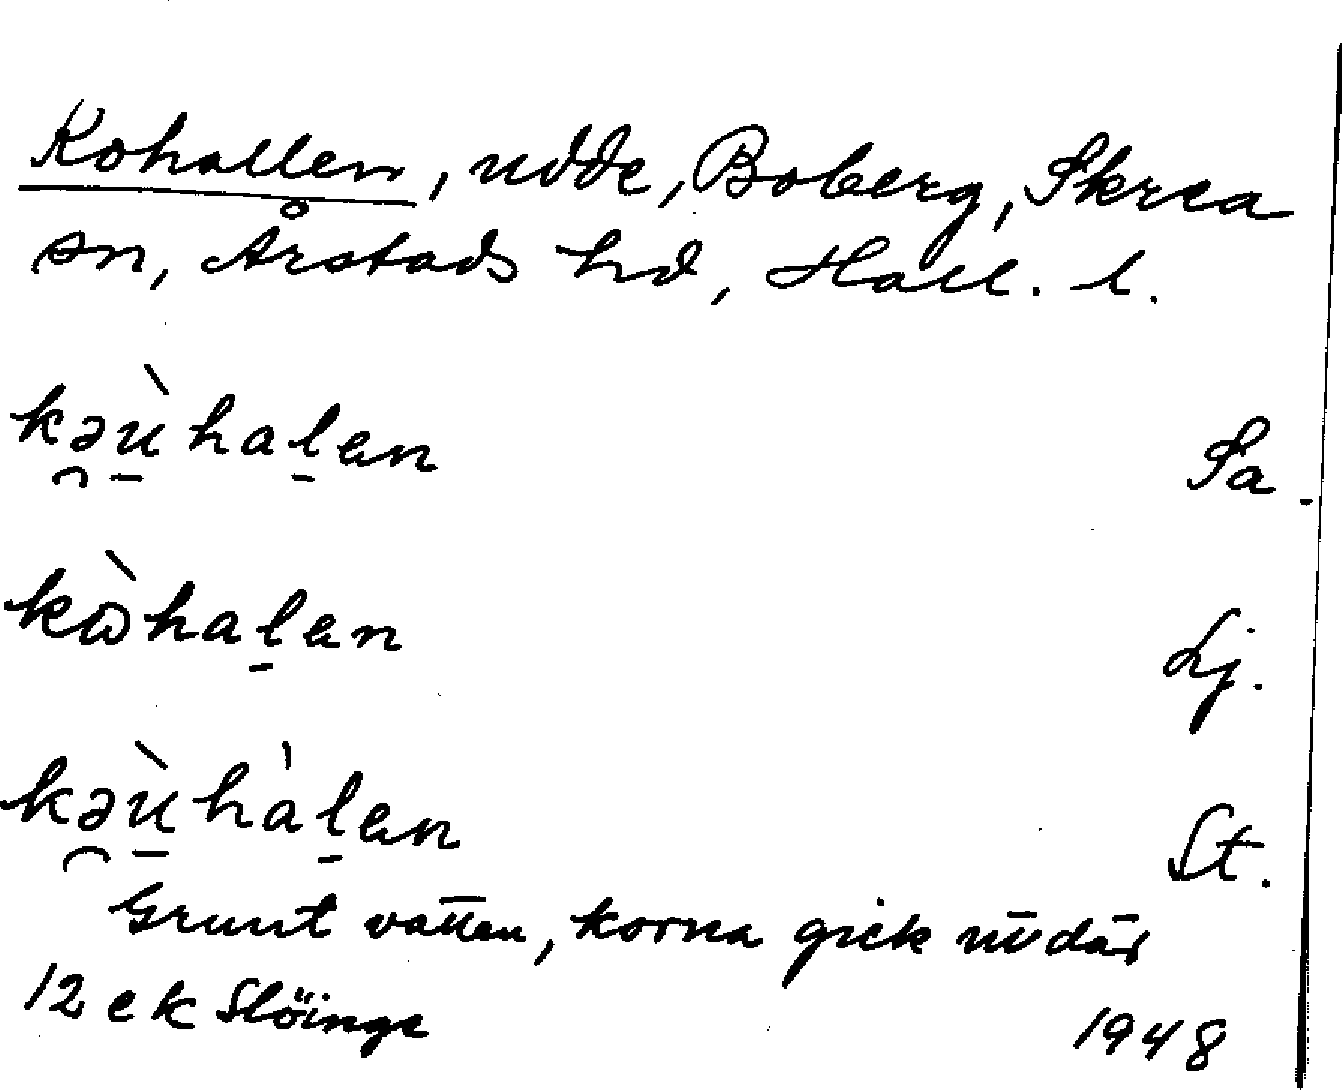 Kohallen, udde, Boberg, Skrea
sn, Årstads hd, Hall. l.
kə̯ù̱haḻen Sa.
kɷ̀haḻen Lj.
kə̯ù̱hàḻen St.
Grunt vatten, korna gick ut där
12 ek Slöinge 1948